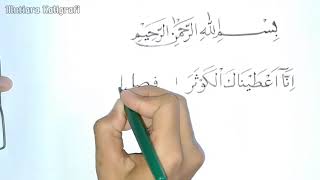 Mutiara Kaligrafi
بِسْمِ اللهِ الرَّحْمٰنِ الرَّحِيْمِ
اِنَّآ اَعْطَيْنَاكَ الْكَوْثَرَ